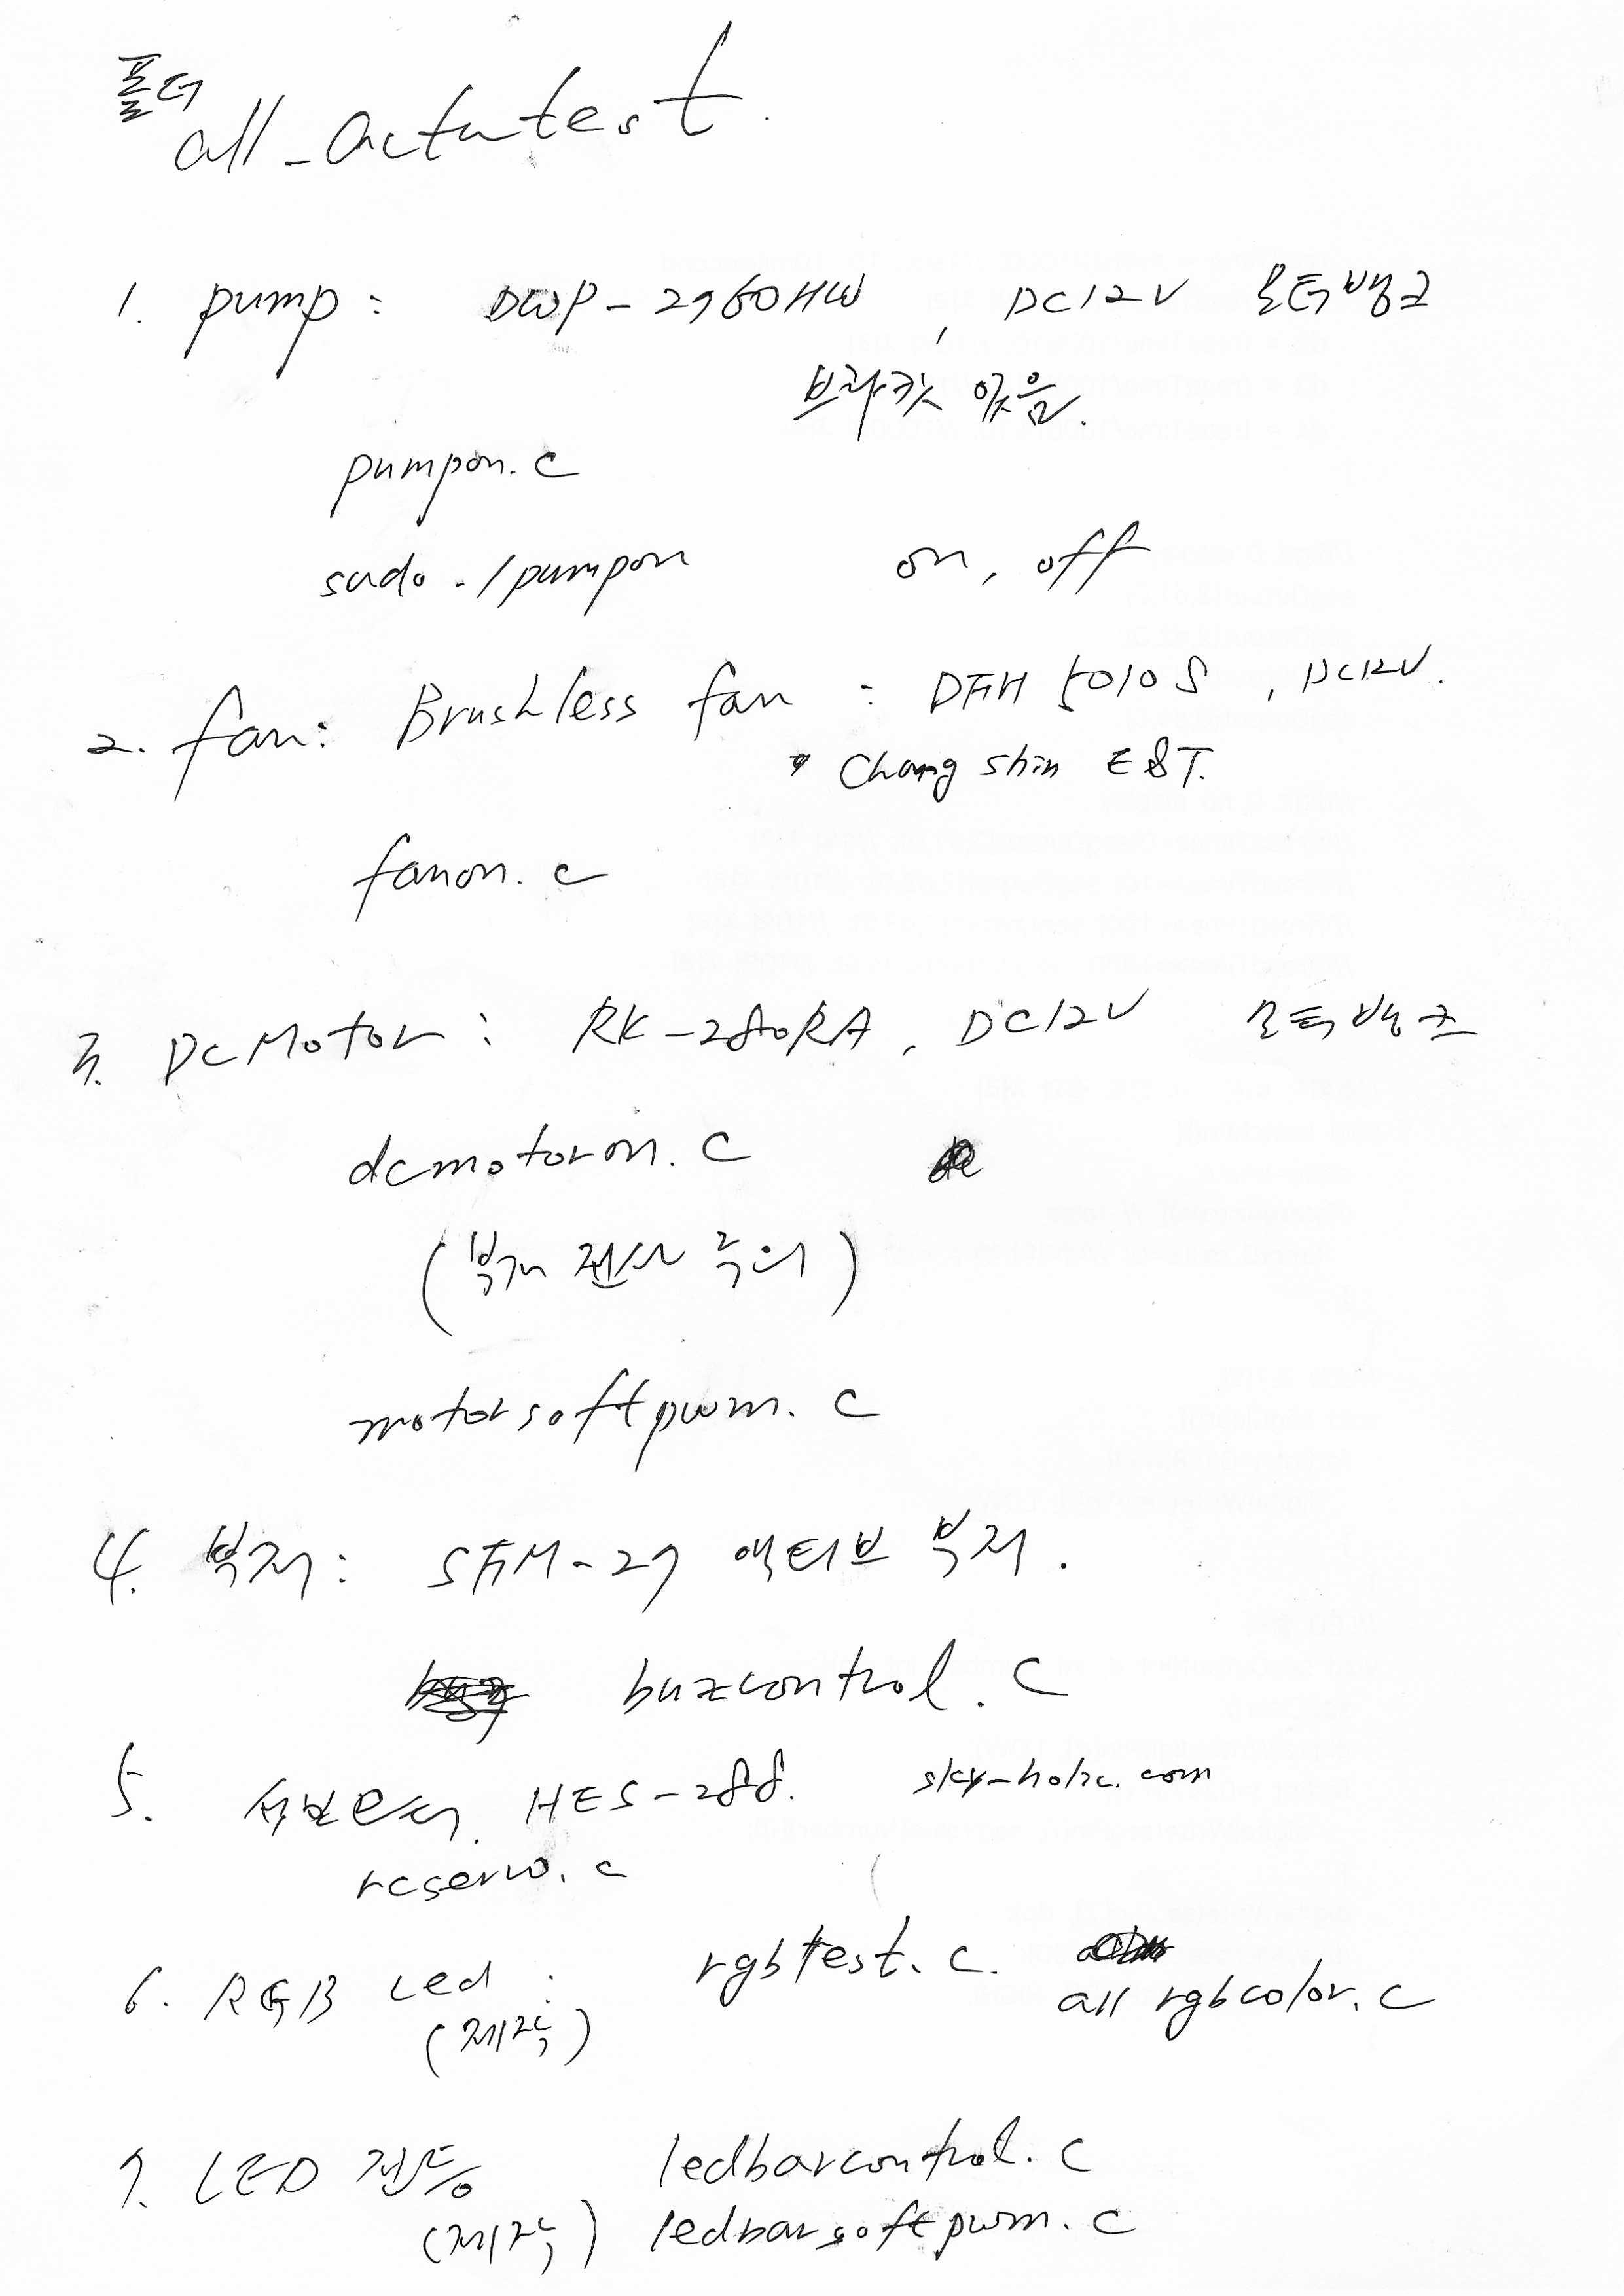 폴더
all_actutest.
1. pump : DWP-2760HW, DC12V 모터뱅크
브라켓 있음.
pumpon.c
sudo ./pumpon on, off
2. fan : Brushless fan : DFH 5010S, DC12V.
Chang shin E&T.
fanon.c
3. DC Motor : RK-280RA, DC12V 모터뱅크
dcmotoron.c
(북개 전사 주의)
motorsoftpwm.c
4. 부저 : SFM-27 액티브 부저.
buzcontrol.c
5. 서보모터. HES-288. sky-holic.com
rcservo.c
6. RGB Led : rgbtest.c. allrgbcolor.c
(제작)
7. LED 전등 ledbarcontrol.c
(제작) ledbarsoftpwm.c